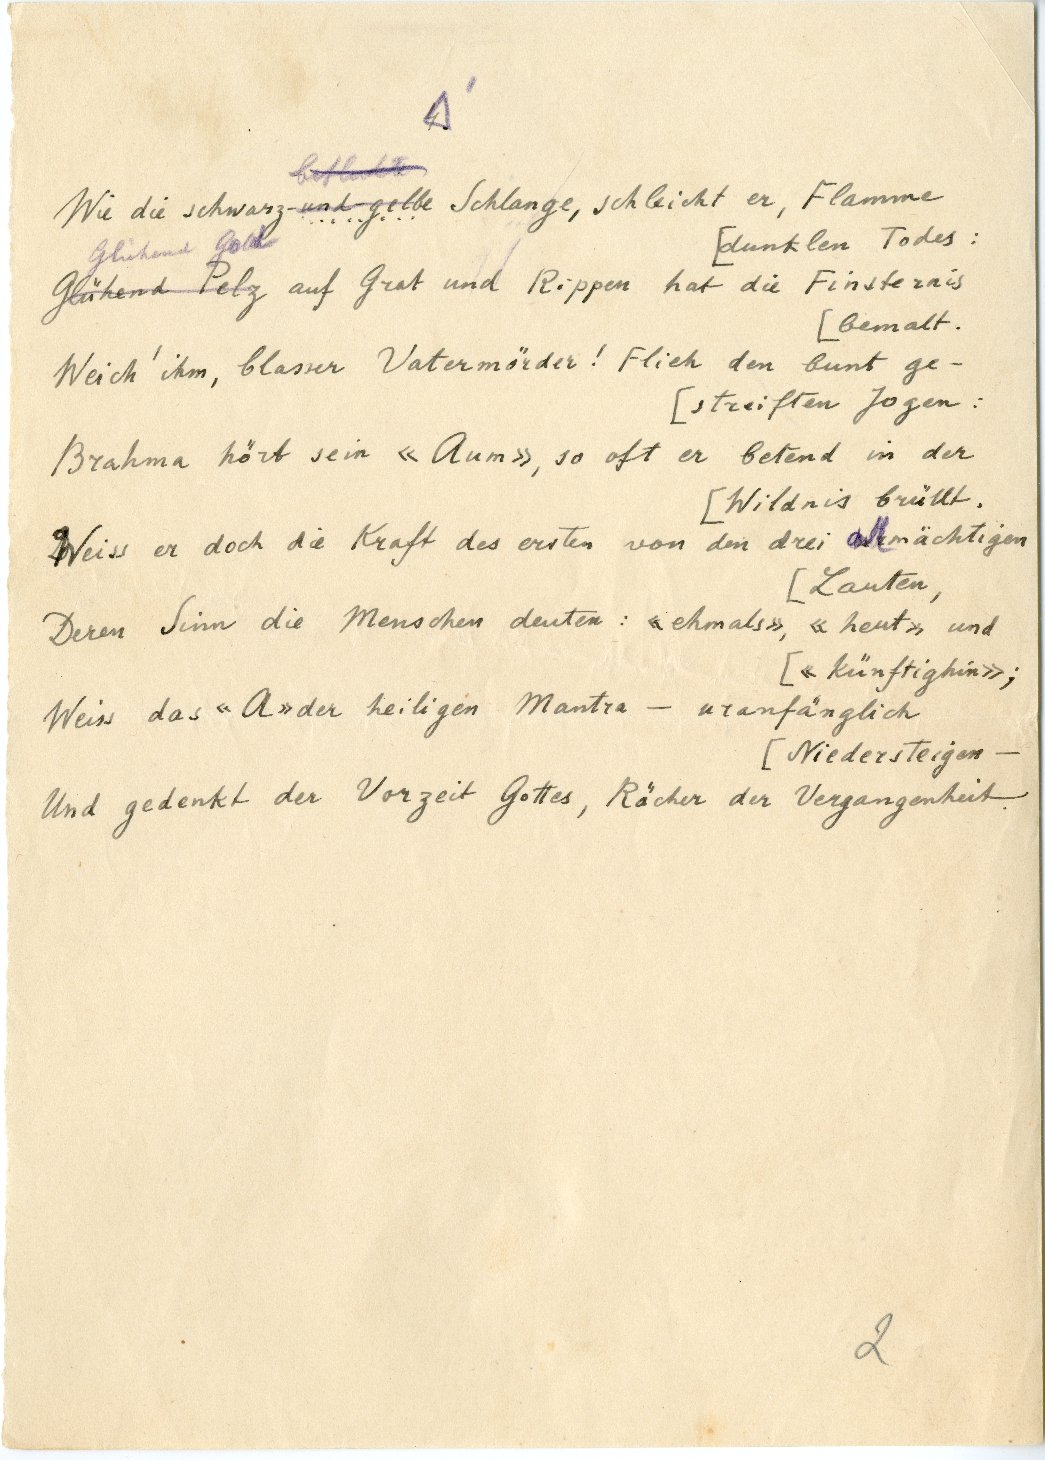 A'
befleckte
Wie die schwarz-und-gelbe Schlange, schleicht er, Flamme
[dunklen Todes:
Glühend Gold
Glühend Pelz auf Grat und Rippen hat die Finsternis
[bemalt.
Weich' ihm, blasser Vatermörder! Flieh den bunt ge-
[streiften Jogen:
Brahma hört sein «Aum», so oft er betend in der
[Wildnis brüllt.
Weiss er doch die Kraft des ersten von den drei allmächtigen
[Lauten,
Deren Sinn die Menschen deuten: «ehmals», «heut» und
[«künftighin»;
Weiss das «A» der heiligen Mantra — uranfänglich
[Niedersteigen —
Und gedenkt der Vorzeit Gottes, Rächer der Vergangenheit.
2